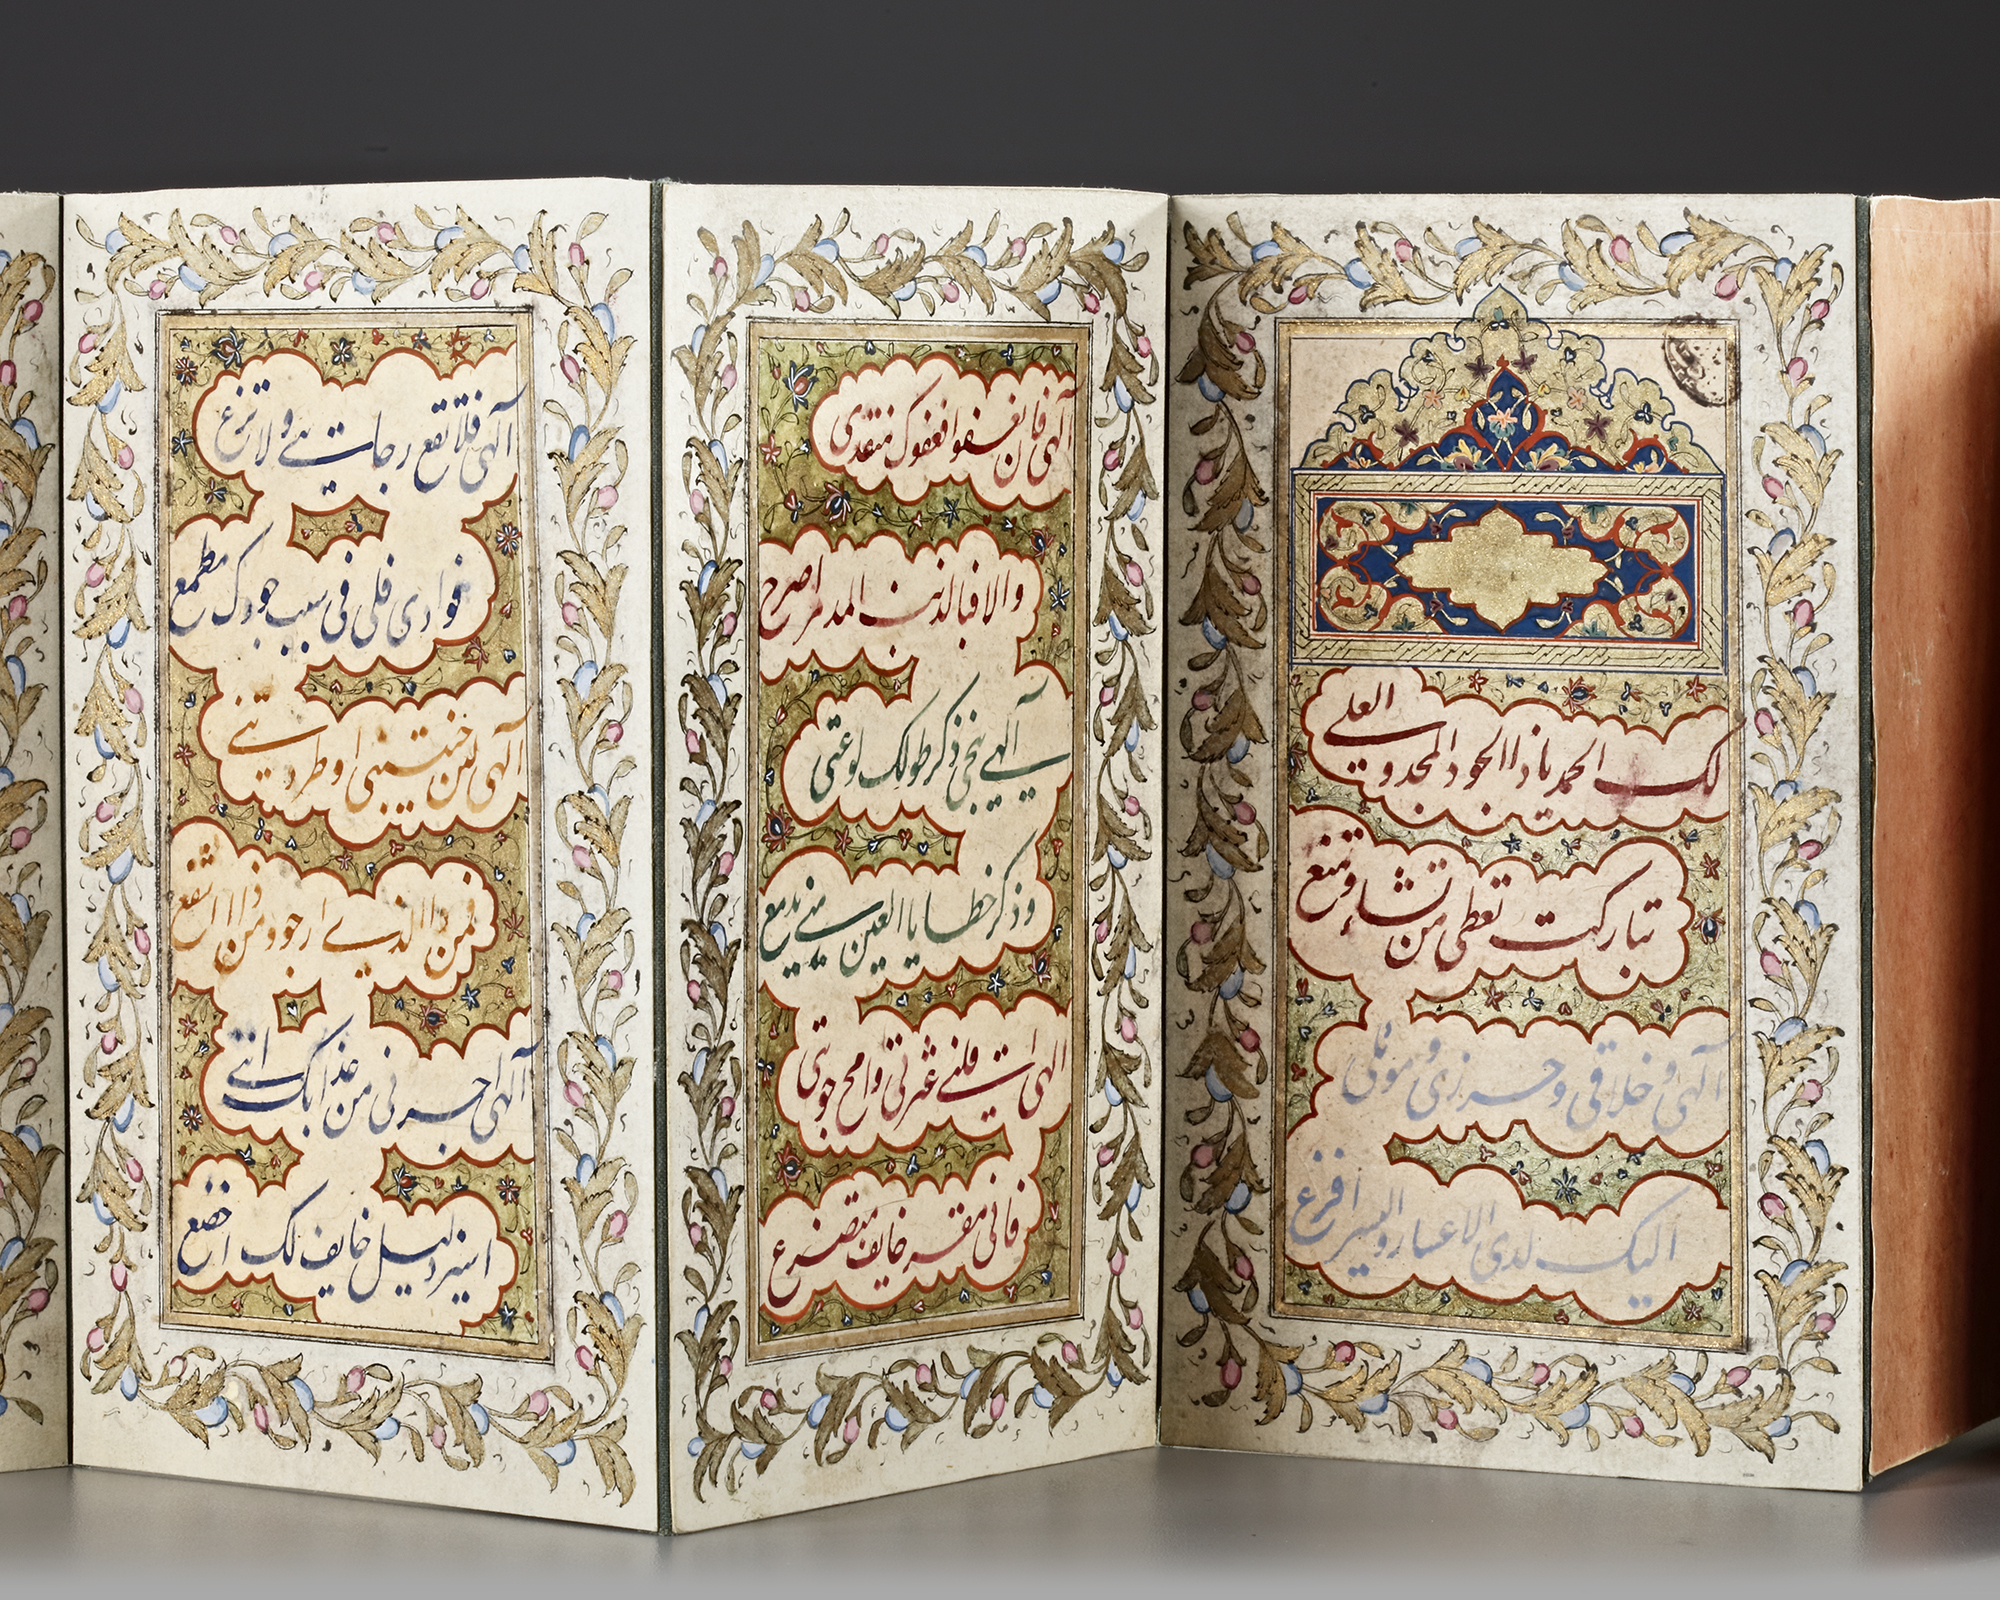 لک الحمد یاذا الجود المجد و العلی
تبارکت تعطی من تشاء و تمنع
آلهی و خلاقی و حرزی و موئلی
الیک لدی الاعسار و الیسر افزع
آلهی فان تعفوا فعفوک منقذی
والا فبالذنب المدمر اصرع
آلهی ینجی ذکر طولک لوعتی
و ذکر خطایا العین منی یدمع
الهی اقلنی عثرتی وامح حوبتی
فانی مقر خایف متضرع
آلهی فلا تقطع رجائی و لا تزغ
فوادی فلی فی سیب جودک مطمع
آلهی لئن خیبتنی او طردتنی
فمن ذا الذی ارجو و من ذا اشفع
آلهی اجرنی من عذابک اننی
اسیر ذلیل خایف لک اخضع